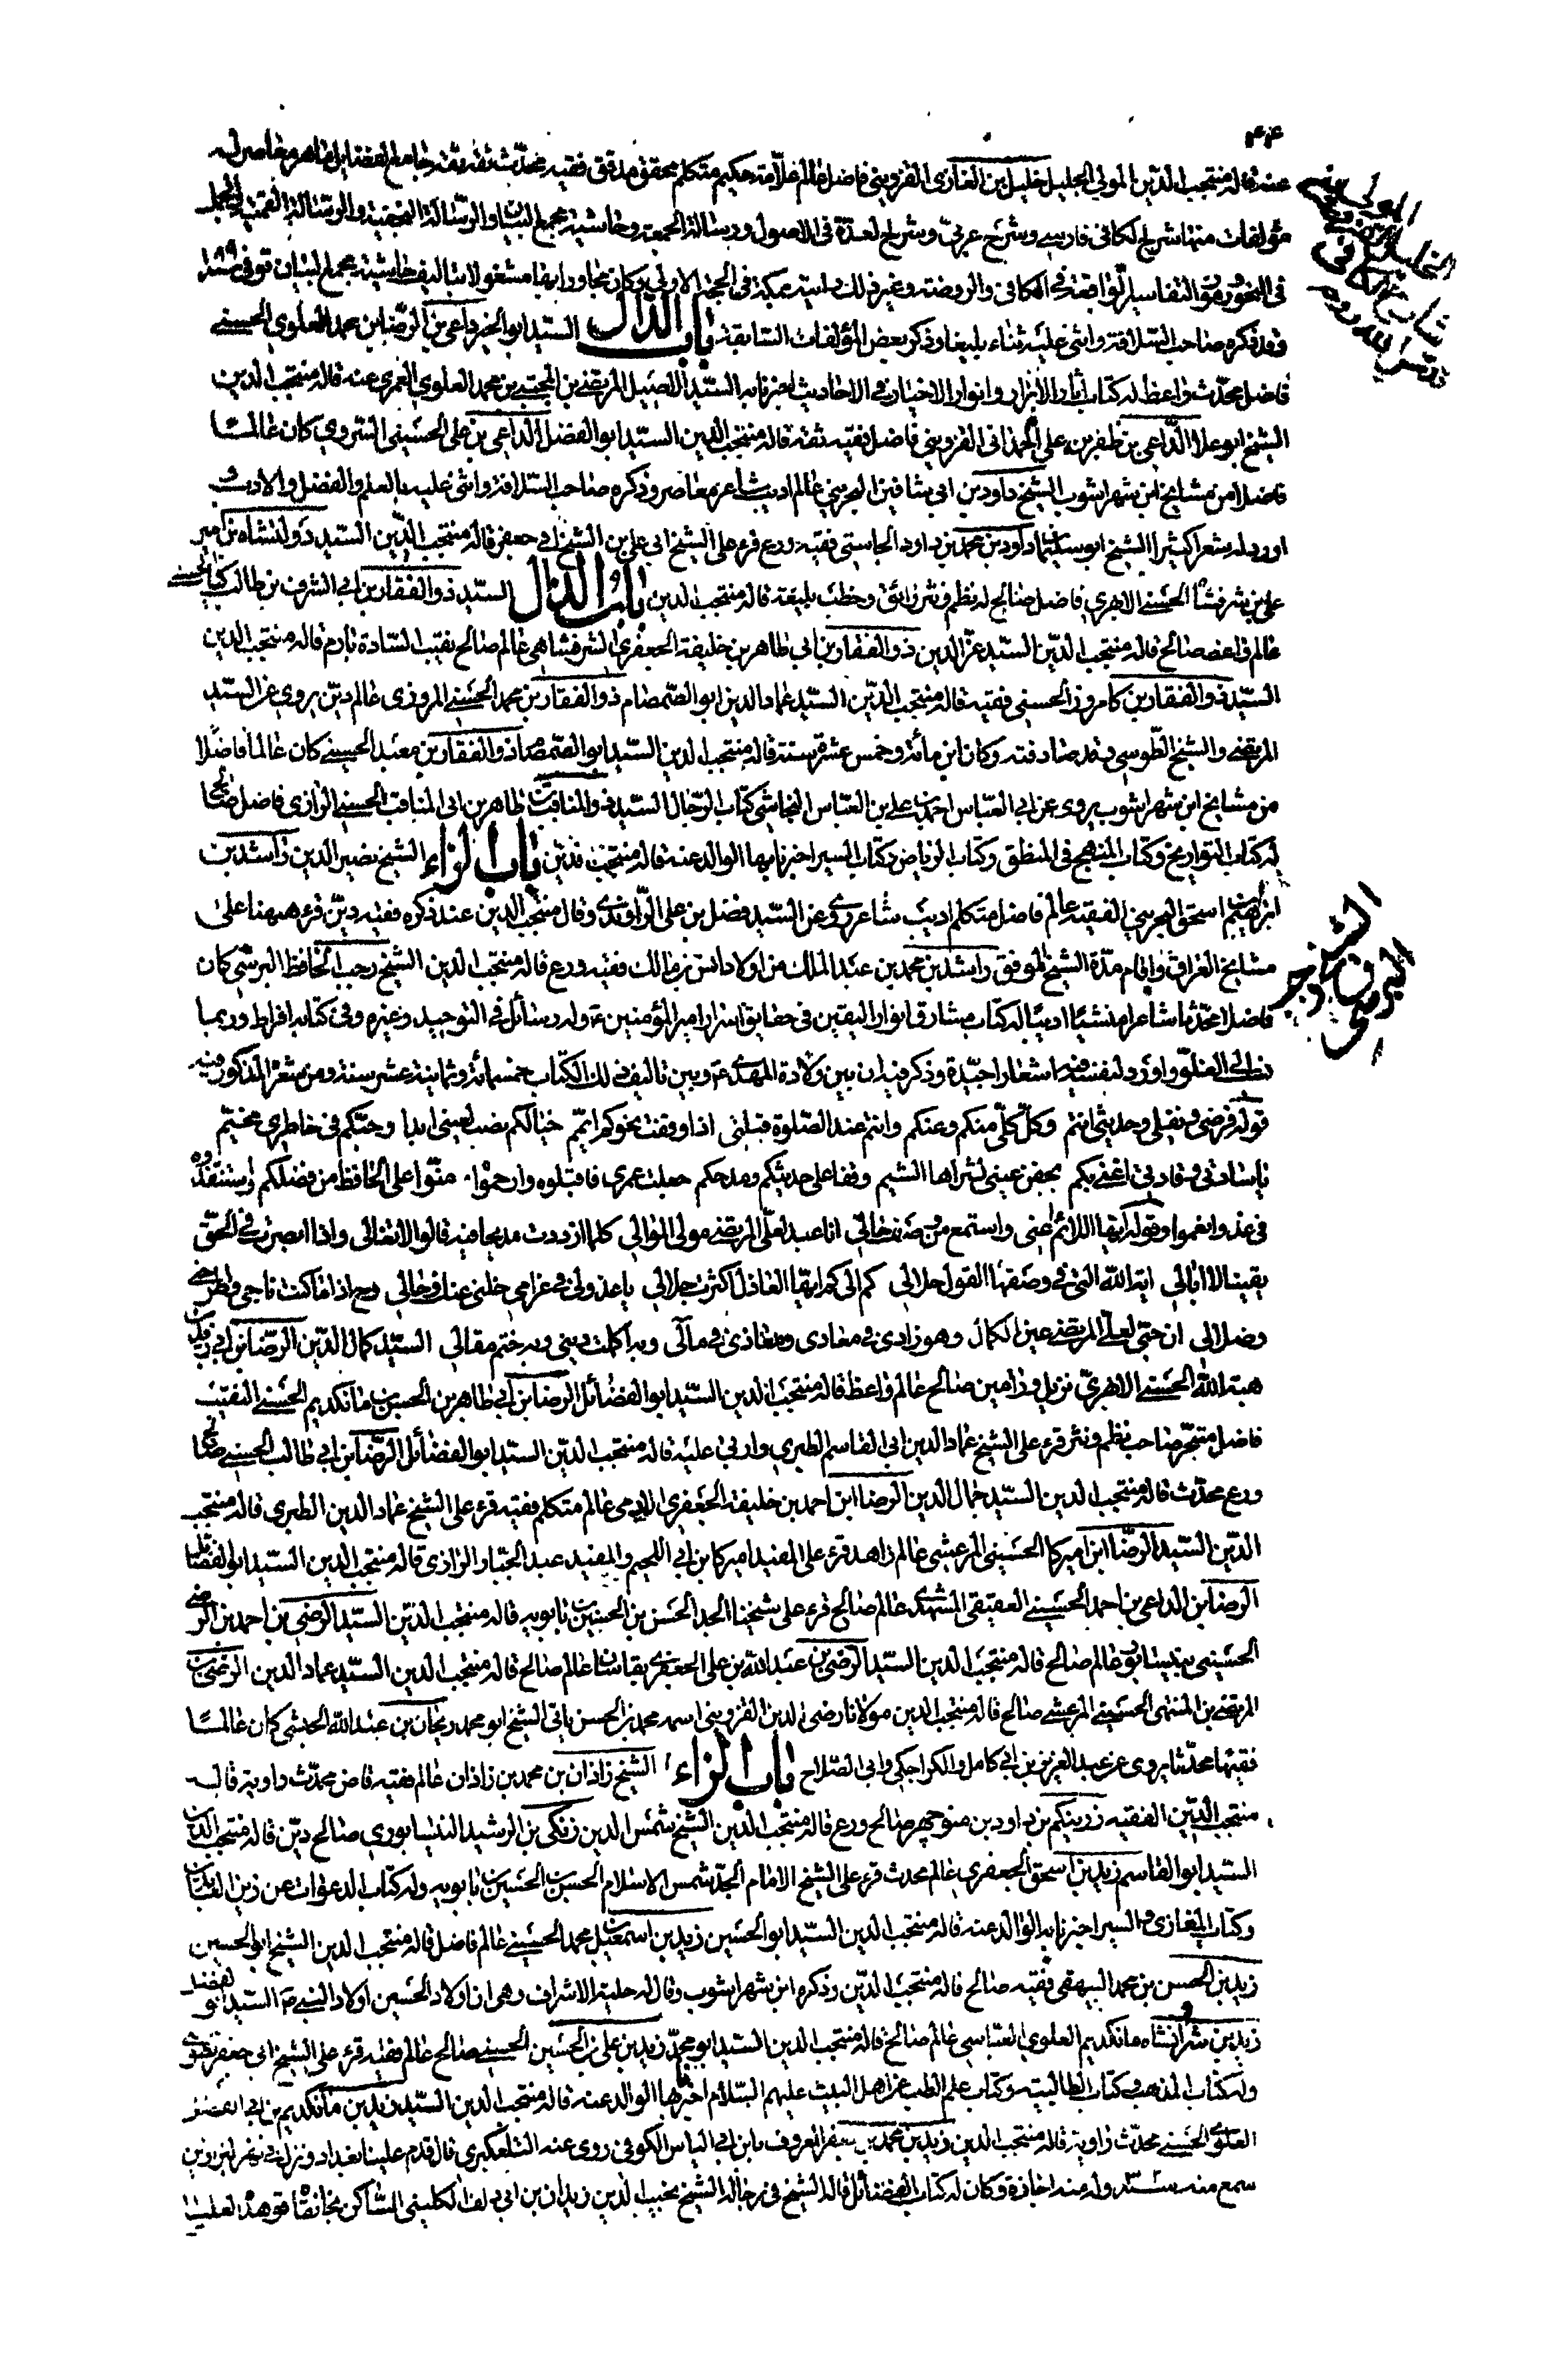 ۴۴
عنه قاله منتجب الدين المولى الجليل خليل بن الغازي القزويني فاضل عالم علامة حكيم متكلم محقق مدقق فقيه محدث ثقة ثقة جامع للفضايل ماهر معاصر له
مؤلفات منها شرح الكافى فارسي وشرح عربي وشرح العدة فى الاصول ورسالة الجمعة وحاشية مجمع البيان والرسالة النجفية والرسالة القمية والمجمل
فى النحو ورموز التفاسير الواقعة في الكافى والروضة وغير ذلك رايته بمكة فى الحجة الاولى وكان مجاورا بها مشغولا بتاليف حاشية مجمع البيان توفى سنة
وقد ذكره صاحب السلافة واثنى عليه ثناء بليغا وذكر بعض المؤلفات السابقة باب الدال السيد ابو الخير داعي بن الرضا بن محمد العلوي الحسيني
فاضل محدث واعظ له كتاب اثار الابرار وانوار الاخيار في الاحاديث اخبرنا به السيد الاصيل المرتضى بن المجتبى بن محمد العلوي العمري عنه قاله منتجب الدين
الشيخ ابو علاء الداعي بن ظفر بن علي الحمداني القزويني فاضل فقيه ثقة قاله منتجب الدين السيد ابو الفضل الداعي بن علي الحسيني السروي كان عالما
فاضلا من مشايخ ابن شهراشوب الشيخ داود بن ابي شافين البحريني عالم اديب شاعر معاصر وذكره صاحب السلافة واثنى عليه بالعلم والفضل والادب و
اورد له شعرا كثيرا الشيخ ابو سليمان داود بن محمد بن داود الجاستي فقيه ورع قرء على الشيخ ابي علي بن الشيخ ابي جعفر قاله منتجب الدين السيد دولتشاه بن امير
علي بن شرفشاه الحسني الابهري فاضل صالح له نظم ونثر رائق وخطب بليغة قاله منتجب الدين باب الذال السيد ذو الفقار بن ابي الشرف بن طالب كيا الحسني
عالم واعظ صالح قاله منتجب الدين السيد عز الدين ذو الفقار بن ابي طاهر بن خليفة الجعفري الشرفشاهي عالم صالح نقيب السادة بارم قاله منتجب الدين
السيد ذو الفقار بن كامروز الحسيني فقيه قاله منتجب الدين السيد عماد الدين ابو الصمصام ذو الفقار بن محمد الحسيني المروزي عالم دين يروي عن السيد
المرتضى والشيخ الطوسي قد صادفته وكان ابن مائة وخمس عشرة سنة قاله منتجب الدين السيد ابو الصمصام ذو الفقار بن معبد الحسيني كان عالما فاضلا
من مشايخ ابن شهراشوب يروي عن ابي العباس احمد بن علي بن العباس النجاشي كتاب الرجال السيد ذو المناقب بن طاهر بن ابي المناقب الحسيني الرازي فاضل صالح
له كتاب التواريخ وكتاب المنهج في المنطق وكتاب الرياض وكتاب السير اخبرنا بها الوالد عنه قاله منتجب الدين باب الراء الشيخ نصير الدين راشد بن
ابراهيم بن اسحق البحريني الفقيه عالم فاضل متكلم اديب شاعر روى عن السيد فضل بن علي الراوندي وقال منتجب الدين عند ذكره فقيه دين قرء ههنا على
مشايخ العراق واقام مدة الشيخ الموفق راشد بن محمد بن عبد الملك من اولاد انس بن مالك فقيه ورع قاله منتجب الدين الشيخ رجب الحافظ البرسي كان
فاضلا محدثا شاعرا منشيا اديبا له كتاب مشارق انوار اليقين في حقايق اسرار امير المؤمنين ع وله رسائل في التوحيد وغيره وفي كتابه افراط وربما
نسب الى الغلو واورد لنفسه فيه اشعارا جيدة وذكر فيه ان بين ولادة المهدي ع وبين تاليف ذلك الكتاب خمسمائة وثمانية عشر سنة ومن شعره المذكور فيه
قوله فرضي ونفلي وحديثي انتم وكل كلي منكم وعنكم وانتم عند الصلوة قبلتي اذا وقفت نحوكم ايمم خيالكم نصب لعيني ابدا وحبكم في خاطري مخيم
يا سادتي وقادتي اعتابكم بجفن عيني لثراها الثم وقفا على حديثكم ومدحكم جعلت عمري فاقبلوه وارحموا منوا على الحافظ من فضلكم واستنقذوه
في غد وانعموا وقوله ايها اللائم دعني واستمع من وصف حالي انا عبد لعلي المرتضى مولى الموالي كلما ازددت مديحا فيه قالوا لا تغالي واذا ابصرت في الحق
يقينا لا ابالي اية الله التي في وصفها القول حلالي كم الى كم ايها العاذل اكثرت جدالي يا عذولي في غرامي خلني عنك وحالي رح اذا ما كنت ناجي واطرحني
وضلالي ان حبي لعلي المرتضى عين الكمال وهو زادي في معادي ومعاذي في مآلي وبه اكملت ديني وبه ختم مقالي السيد كمال الدين الرضا بن ابي زيد بن
هبة الله الحسني الابهري نزيل ورامين صالح عالم واعظ قاله منتجب الدين السيد ابو الفضائل الرضا بن ابي طاهر بن الحسن بن مانكديم الحسني النقيب
فاضل متبحر صاحب نظم ونثر قرء على الشيخ عماد الدين ابي القاسم الطبري واربى عليه قاله منتجب الدين السيد ابو الفضائل الرضا بن ابي طالب الحسيني صالح
ورع محدث قاله منتجب الدين السيد جمال الدين الرضا ابن احمد بن خليفة الجعفري الارمي عالم متكلم فقيه قرء على الشيخ عماد الدين الطبري قاله منتجب
الدين السيد الرضا ابن اميركا الحسيني المرعشي عالم زاهد قرء على المفيد اميركا بن ابي اللجيم والمفيد عبد الجبار الرازي قاله منتجب الدين السيد ابو الفضائل
الرضا بن الداعي بن احمد الحسيني العقيقي المشهدي عالم صالح قرء على شيخنا الجد الحسن بن الحسين بن بابويه قاله منتجب الدين السيد الرضي بن احمد بن الرضي
الحسيني بنيسابور عالم صالح قاله منتجب الدين السيد الرضي بن عبد الله بن علي الجعفري بقاسان عالم صالح قاله منتجب الدين السيد عماد الدين الرضي بن
المرتضى بن المنتهى الحسيني المرعشي صالح قاله منتجب الدين مولانا رضي الدين القزويني اسمه محمد بن الحسن ياتي الشيخ ابو محمد ريحان بن عبد الله الحبشي كان عالما
فقيها محدثا يروي عن عبد العزيز بن ابي كامل والكراجكي وابي الصلاح باب الزاء الشيخ زاذان بن محمد بن زاذان عالم فقيه قاض محدث راوية قاله
منتجب الدين الفقيه زرينكم بن داود بن منوچهر صالح ورع قاله منتجب الدين الشيخ شمس الدين زنكي بن الرشيد النيسابوري صالح دين قاله منتجب الدين
السيد ابو القاسم زيد بن اسحق الجعفري عالم محدث قرء على الشيخ الامام الجد شمس الاسلام الحسن بن الحسين بن بابويه وله كتاب الدعوات عن زين العابدين
وكتاب المغازي والسير اخبرنا به الوالد عنه قاله منتجب الدين السيد ابو الحسين زيد بن اسمعيل بن محمد الحسيني عالم فاضل قاله منتجب الدين الشيخ ابو الحسين
زيد بن الحسن بن محمد البيهقي فقيه صالح قاله منتجب الدين وذكره ابن شهراشوب وقال له حلية الاشراف وهي ان اولاد الحسين اولاد النبي ص السيد ابو الفضل
زيد بن شروانشاه مانكديم العلوي العباسي عالم صالح قاله منتجب الدين السيد ابو محمد زيد بن علي بن الحسين الحسيني صالح عالم فقيه قرء على الشيخ ابي جعفر الطوسي
وله كتاب المذهب وكتاب الطالبية وكتاب علم الطب عن اهل البيت عليهم السلام اخبرنا بها الوالد عنه قاله منتجب الدين السيد زيد بن مانكديم بن ابي الفضل
العلوي الحسني محدث راوية قاله منتجب الدين زيد بن محمد بن جعفر المعروف بابن ابي الياس الكوفي روى عنه التلعكبري قال قدم علينا بغداد ونزل في نهر البزازين
سمع منه سنة وله منه اجازة وكان له كتاب الفضائل قاله الشيخ في رجاله الشيخ نجيب الدين زيدان بن ابي دلف الكليني الساكن بخانقاه قوهذه العليا
المولى
الخليل القزويني
شارح الكافي
الشيخ رجب
البرسي